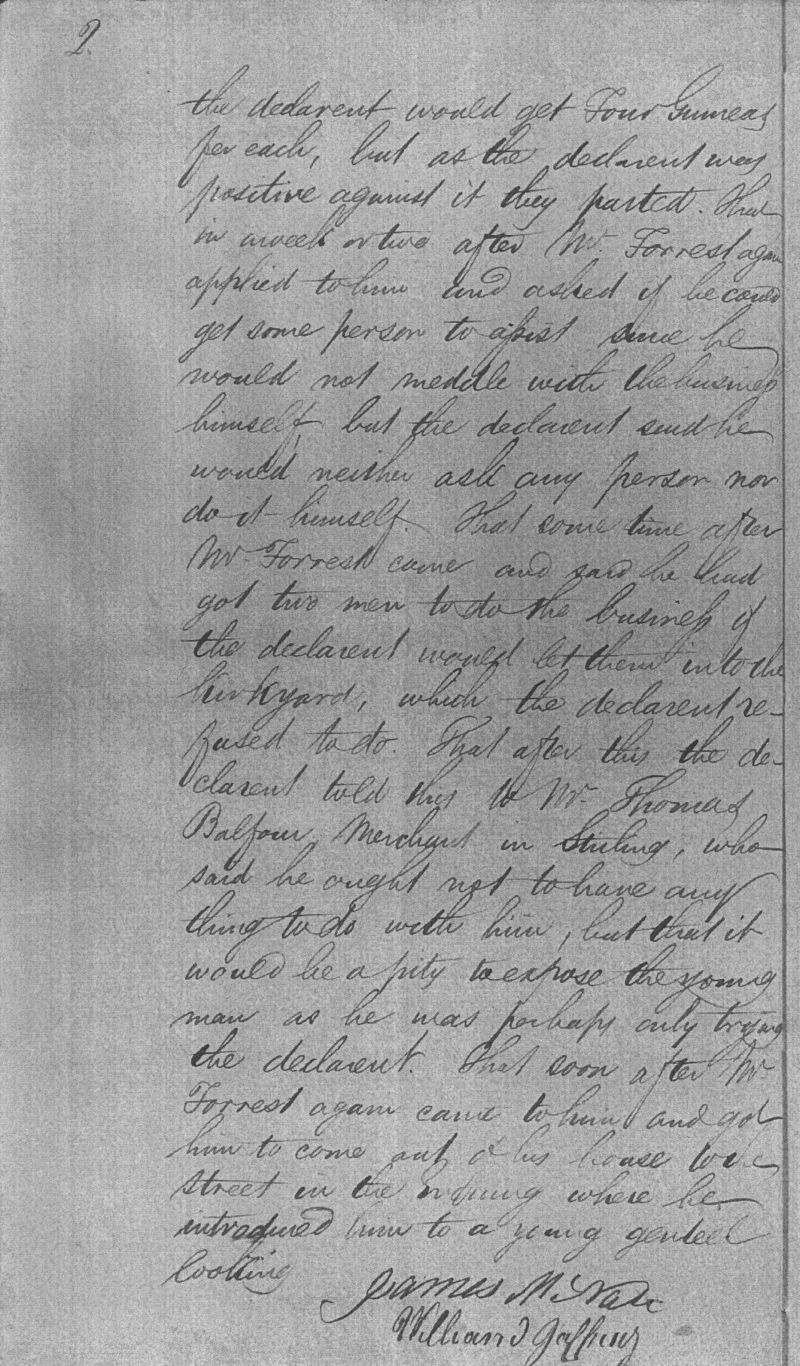 2.
the declarent would get Four Guineas
for each, but as the declarent was
positive against it they parted. That
in a week or two after Mr. Forrest again
applied to him and asked if he could
get some person to assist since he
would not meddle with the business
himself, but the declarent said he
would neither ask any person nor
do it himself. That some time after
Mr. Forrest came and said he had
got two men to do the business if
the declarent would let them into the
kirkyard, which the declarent re-
fused to do. That after this the de-
clarent told this to Mr. Thomas
Balfour Merchant in Stirling, who
said he ought not to have any
thing to do with him, but that it
would be a pity to expose the young
man as he was perhaps only trying
the declarent. That soon after Mr.
Forrest again came to him and got
him to come out of his house to the
street in the where he
introduced him to a young genteel
looking
James McNab
William